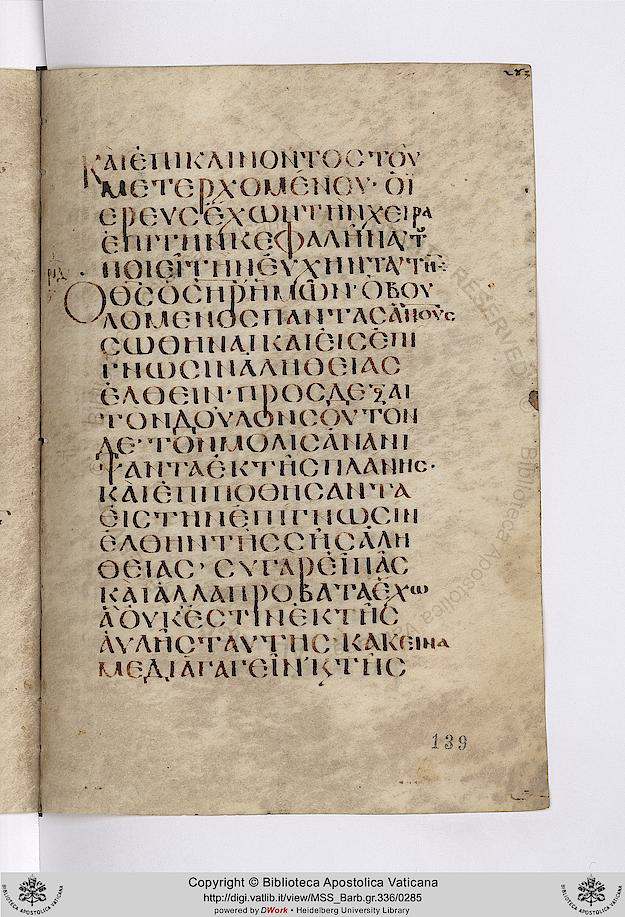 ΚΑΙ ΕΠΙΚΛΙΝΟΝΤΟΣ ΤΟΥ
ΜΕΤΕΡΧΟΜΕΝΟΥ· ΟΪ
ΕΡΕΥΣ ΕΧΩΝ ΤΗΝ ΧΕΙΡΑ
ΕΠΙ ΤΗΝ ΚΕΦΑΛΗΝ ΑΥΤΟΥ
ΠΟΙΕΙ ΤΗΝ ΕΥΧΗΝ ΤΑΥΤΗΝ:
Ο ΘΣ Ο ΣΗΡ ΗΜΩΝ· Ο ΒΟΥ
ΛΟΜΕΝΟΣ ΠΑΝΤΑΣ ΑΝΟΥΣ
ΣΩΘΗΝΑΙ ΚΑΙ ΕΙΣ ΕΠΙ
ΓΝΩΣΙΝ ΑΛΗΘΕΙΑΣ
ΕΛΘΕΙΝ· ΠΡΟΣΔΕΞΑΙ
ΤΟΝ ΔΟΥΛΟΝ ΣΟΥ ΤΟΝ
ΔΕ· ΤΟΝ ΜΟΛΙΣ ΑΝΑΝΙ
ΨΑΝΤΑ ΕΚ ΤΗΣ ΠΛΑΝΗΣ·
ΚΑΙ ΕΠΙΠΟΘΗΣΑΝΤΑ
ΕΙΣ ΤΗΝ ΕΠΙΓΝΩΣΙΝ
ΕΛΘΗΝ ΤΗΣ ΣΗΣ ΑΛΗ
ΘΕΙΑΣ· ΣΥ ΓΑΡ ΕΙΠΑΣ
ΚΑΙ ΑΛΛΑ ΠΡΟΒΑΤΑ ΕΧΩ
Α ΟΥΚ ΕΣΤΙΝ ΕΚ ΤΗΣ
ΑΥΛΗΣ ΤΑΥΤΗΣ· ΚΑΚΕΙΝΑ
ΜΕ ΔΙ ΑΓΑΓΕΙΝ· Κ ΤΗΣ
139
Copyright © Biblioteca Apostolica Vaticana
http://digi.vatlib.it/view/MSS_Barb.gr.336/0285
powered by DWork • Heidelberg University Library